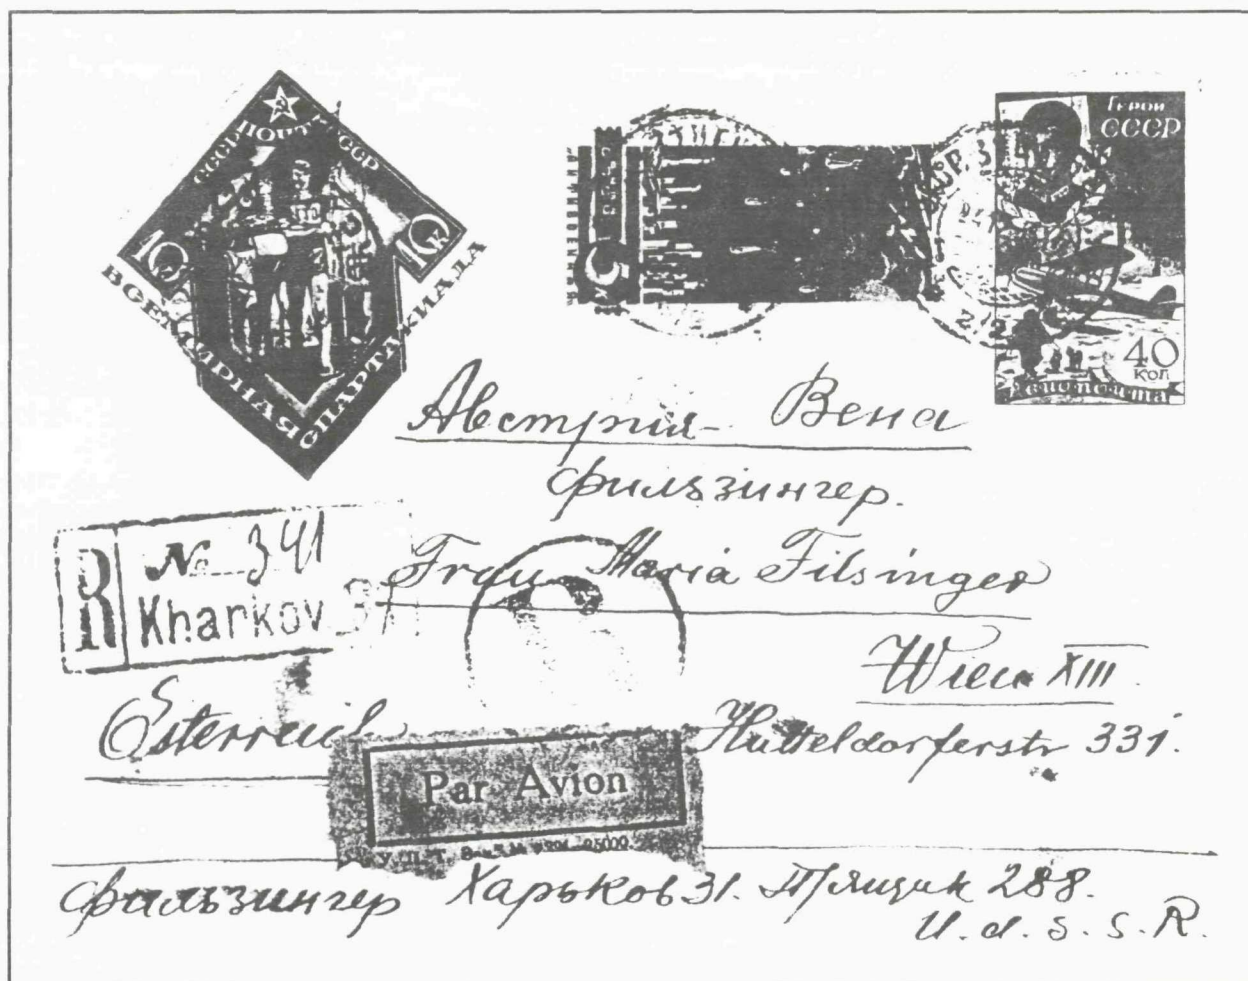 СССР ПОЧТА СССР
10 10 К
ВСЕМИРНАЯ СПАРТАКИАДА
ГЕРОИ
СССР
40
КОП
Австрия - Вена
Фильзингер.
R № 341
Kharkov 31
Frau Maria Filsinger
Wien XIII.
Österreich Hütteldorferstr 331.
Par Avion
Фильзингер Харьков 31. П/ящик 288.
U.d.S.S.R.